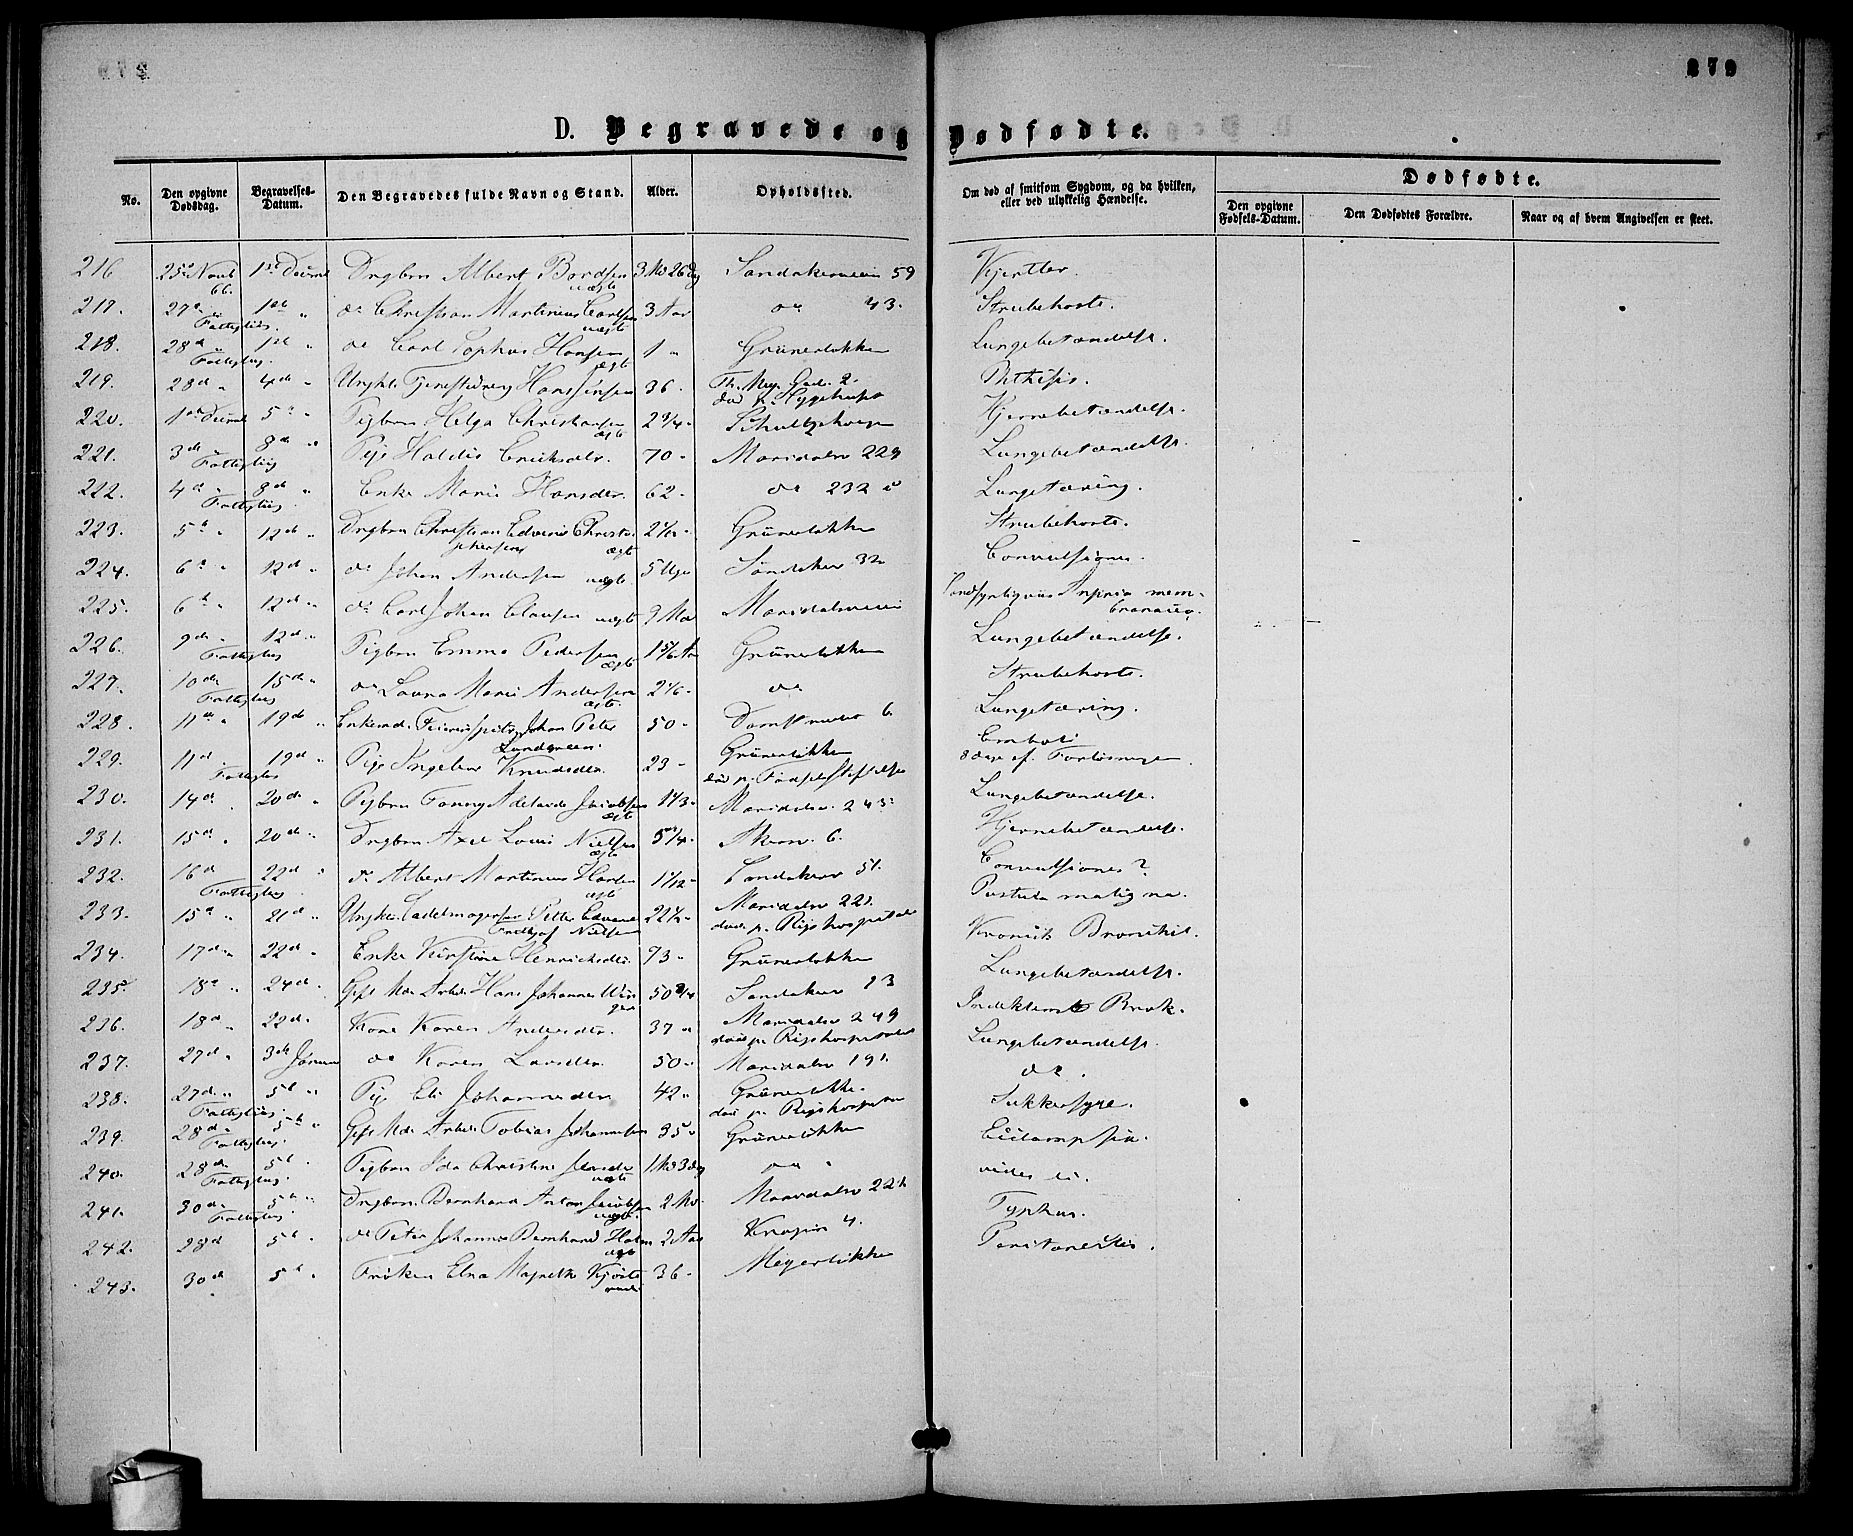 279
D. Begravede og Dødfødte.
No. Den opgivne Dødsdag. Begravelses-Datum. Den Begravedes fulde Navn og Stand. Alder. Opholdssted. Om død af smitsom Sygdom, og da hvilken, eller ved ulykkelig Hændelse. Dødfødte.
Den opgivne Fødsels-Datum. Den Dødfødtes Forældre. Naar og af hvem Angivelsen er skeet.
216 25de Novb 66. 1ste Decemb Drgbrn Albert Bordsen uægte 3 Md 26 Dg Sandakerveien 59 Kjertler.
217. 27de " Fattiglig. 1ste " do Christian Martinius Carlsen uægte 3 Aar do 43. Strubehoste.
218. 28d " Fattiglig. 1ste " do Carl Sophus Hansen ægte 1 " Grünerløkken Lungebetændelse.
219. 28d " 4de " Ungkl. Tjenestedreng Hans Jensen 36 Th. Mey. Gade 2. død p. Sygehuset Phthisis.
220. 1ste Decemb 5te " Pigbrn Helga Christiansen ægte 2 3/4 Schultzehaugen Hjernebetændelse.
221. 3de " Fattiglig 8de " Pige Haldis Eriksdtr. 70 Maridalsv 229 Lungebetændelse.
222. 4de " Fattiglig. 8de " Enke Marie Hansdtr. 62 do 232 Lungetæring.
223. 5te " 12de " Drgbrn Christian Edvard Christophersen ægte 2 1/2 Grünerløkken Strubehoste.
224. 6te " 12de " do Johan Andersen uægte 5 Uger Sandaker 32 Convulsioner.
225. 6te " 12de " do Carl Johan Clausen uægte 9 Md Maridalsveien Sandsynligvis Angina membranacea.
226. 9de " Fattiglig 12de " Pigbrn Emma Pedersen ægte 1 5/6 Aar Grünerløkken Lungebetændelse.
227. 10de Fattiglig. 15de " do Laura Marie Andersen ægte. 2 1/6 do Strubehoste.
228. 11te " 19de " Enkemd. Feierinspektr Johan Peter Lundgreen. 50 Damstrædet 6. Lungetæring.
229. 11te " Fattiglig 19de " Pige Ingeline Knudsdtr. 23 Grünerløkken død p. Fødselsstiftelse Emboli 8 Dage ef. Forløsningen.
230. 14de " 20de " Pigbrn Fanny Adelaide Jacobsen ægte 1 1/3 Maridalsv. 243. Lungebetændelse.
231. 15de " 20de " Drgbrn Axel Louis Nielsen ægte 5 1/4 Akersv. 6. Hjernebetændelse.
232. 16de Fattiglig. 22de " do Albert Martinius Hansen ægte 1 1/12 Sandakerv 51. Convulsioner?
233. 15de " 21de " Ungkl. Sadelmagersv Petter Edvard Fridtjof Nielsen 22 1/2 Maridalsv 221. død p. Rigshospitalet Pustula maligna.
234. 17de " 22de " Enke Kirstine Henriksdtr. 73 Grünerløkken Kronisk Bronchit.
235. 18de " 24de " Gift Md. Arbdr. Hans Johannes Winger 50 3/4 Sandakerv 13 Lungebetændelse.
236. 18de " 22de " Kone Karen Andersdtr. 37 Maridalsv 249 død p. Rigshospitalet Indeklemt Brok.
237. 27de " 3de Januar do Karen Larsdtr. 50 Maridalsv 191. Lungebetændelse.
238. 27de " Fattiglig. 5te " Pige Eli Johannesdtr 42 Grünerløkke. død p. Rigshospital do.
239. 28de " Fattiglig. 5te " Gift Md. Arbdr Tobias Johannesen 35 Grünerløkken Sukkersyge.
240. 28de Fattiglig 5te Pigbrn Ida Christine Jensdtr uægte 1 Md 3 Dg do Eclampsia.
241. 30de Fattiglig. 5te " Drgbrn Bernhard Anton Jacobsen uægte. 2 Md. Maridalsv 221
242. 28de 5te do Peter Johannes Bernhard Holm ægte 2 Aar Krogsv 4. Typhus.
243. 30de 5te Frøken Elna Magrethe 36 Meyerløkken Peritonitis.